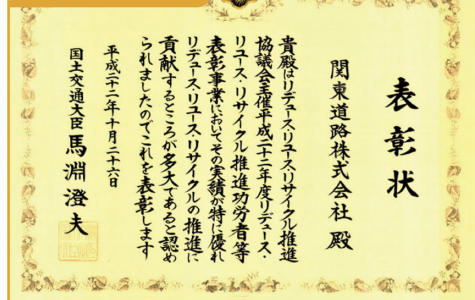 表彰状
関東道路株式会社 殿
貴殿はリデュース・リユース・リサイクル推進
協議会主催平成二十二年度リデュース・
リユース・リサイクル推進功労者等
表彰事業において、その実績が特に優れ
リデュース・リユース・リサイクルの推進に
貢献するところが多大であると認め
られましたのでこれを表彰します
平成二十二年十月二十六日
国土交通大臣 馬淵澄夫